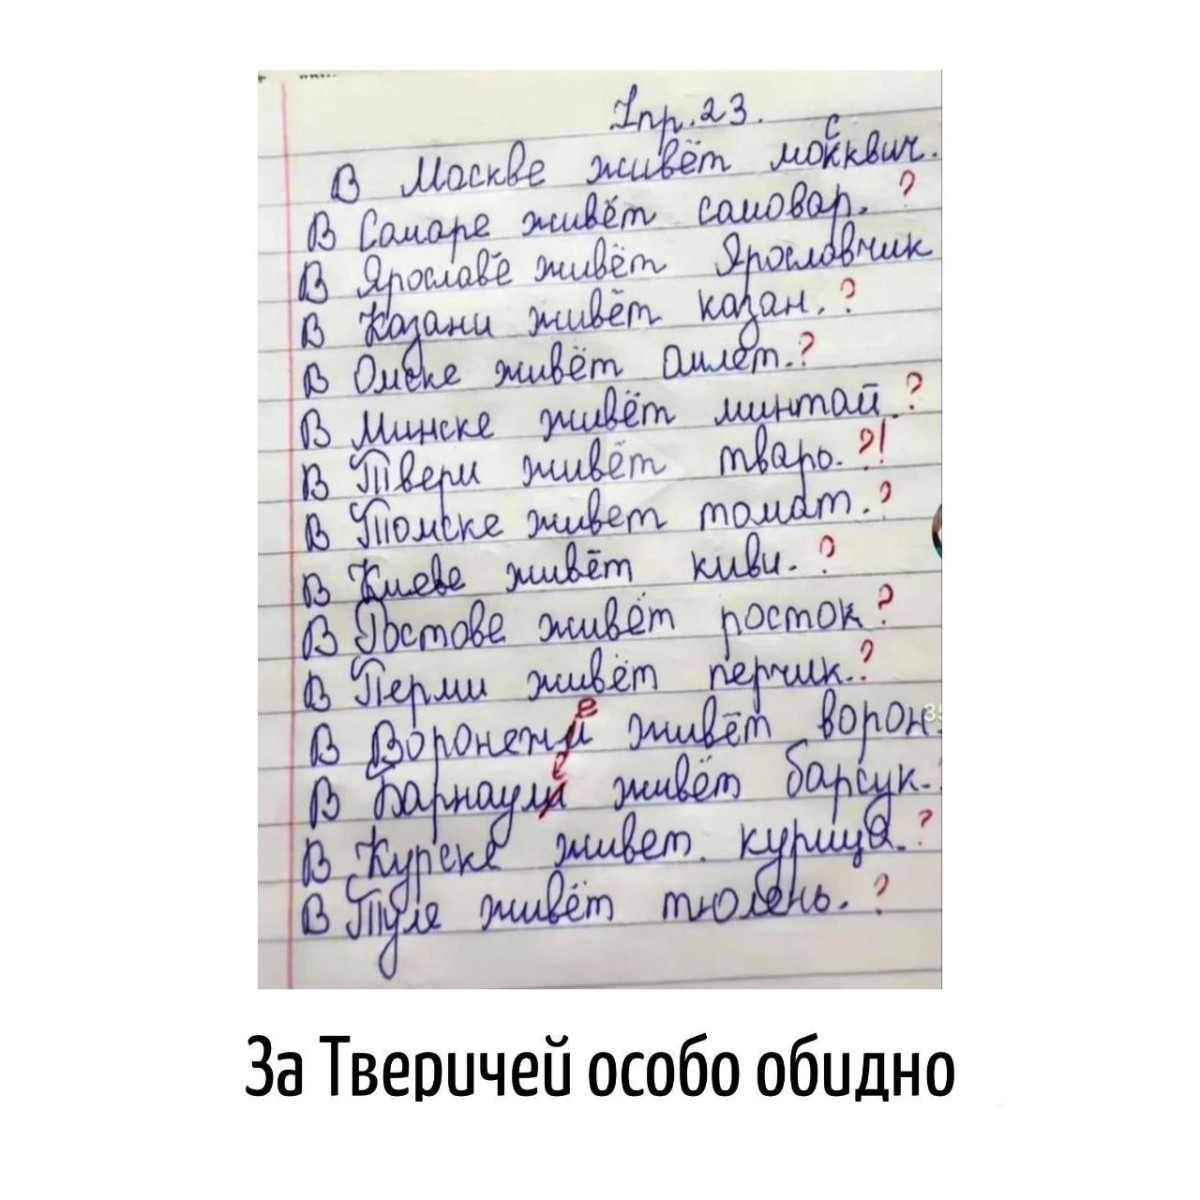 Упр. 23.
В Москве живёт москвич.
В Самаре живёт самовар. ?
В Ярославе живёт Ярославчик
В Казани живёт казан. ?
В Омске живёт омлет. ?
В Минске живёт минтай. ?
В Твери живёт тварь. ?!
В Томске живет томат. ?
В Киеве живёт киви. ?
В Ростове живёт росток ?
В Перми живёт перчик. ?
В Воронеже живёт ворон.
В Барнауле живёт барсук.
В Курске живет курица. ?
В Туле живёт тюлень. ?
За Тверичей особо обидно